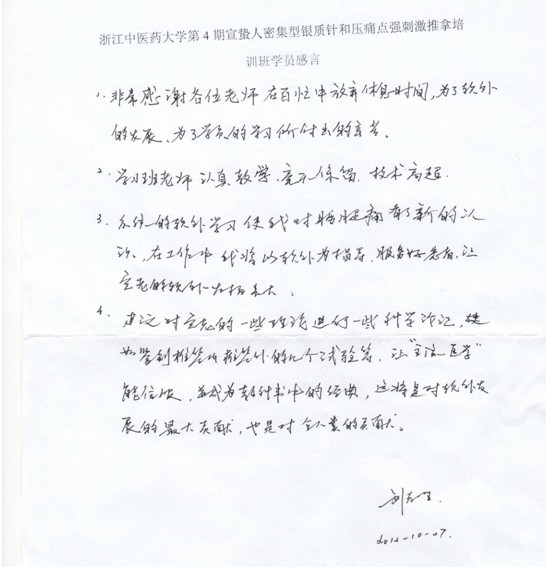 浙江中医药大学第4期宣蛰人密集型银质针和压痛点强刺激推拿培
训班学员感言
1、非常感谢各位老师在百忙中放弃休息时间,为了软外
的发展、为了学员的学习所付出的辛苦。
2、学习班老师认真教学、毫不保留、技术高超.
3、系统的软外学习使我对腰腿痛有了新的认
识、在工作中我将以软外为指导、服务好患者,让
宣老的软外
4、建议对宣老的一些理论进行一些科学论证,
如鉴别椎管内椎管外的几个试验等、让"宣氏医学"
能
展的最大贡献,也是对全人类的贡献。
2012-10-07.